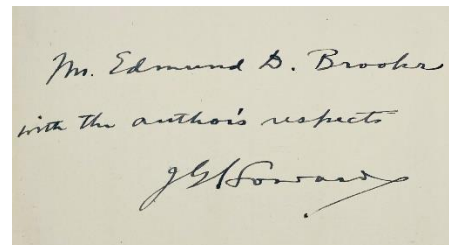 Mr. Edmund D. Brooks
with the author's respects
J G Howard